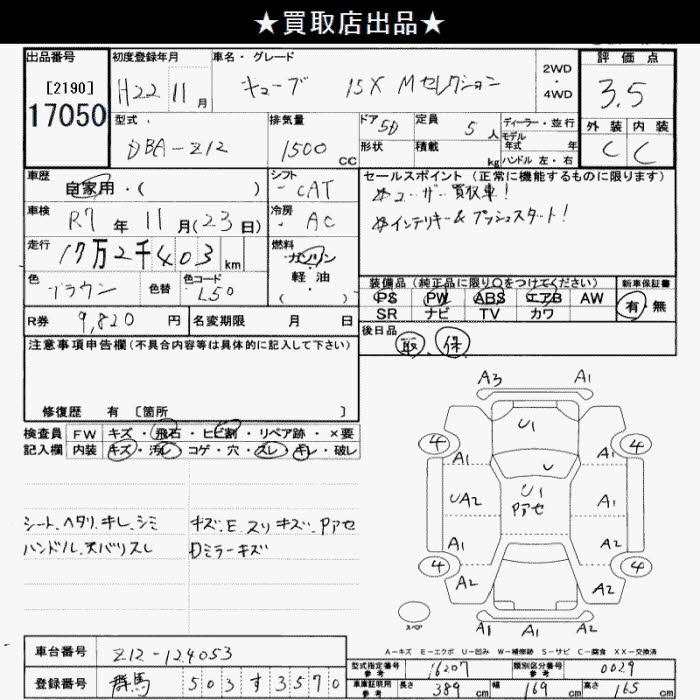 ★買取店出品★
出品番号
[2190]
17050
初度登録年月
H22 11月
車名・グレード
キューブ 15X Mセレクション
2WD
・
4WD
評価点
3.5
外装 内装
C C
型式
DBA-Z12
排気量
1500 CC
ドア 5D
形状
定員 5人
積載 kg
ディーラー・並行
モデル
年式 年
ハンドル 左・右
車歴
自家用・( )
シフト
CAT
車検
R7年11月(23日)
冷房
AC
走行
17万2千403km
燃料
ガソリン
軽・油
( )
色
ブラウン
色替
色コード
L50
R券 9,820円
名変期限 月 日
セールスポイント(正常に機能するものに限ります)
ユーザー買取車!
インテリキー&プッシュスタート!
装備品(純正品に限り○をつけてください)
PS PW ABS エアB AW
SR ナビ TV カワ
新車保証書
有 無
後日品
取 保
注意事項申告欄(不具合内容等は具体的に記入して下さい)
修復歴 有 [箇所 ]
検査員 FW キズ・飛石・ヒビ割・リペア跡・×要
記入欄 内装 キズ・汚レ・コゲ・穴・スレ・キレ・破レ
シート、ヘタリ、キレ、シミ
ハンドル、天バリスレ
キズ、E スリキズ、Pアセ
Dミラーキズ
A3 A1
4 U1 4
A1 U A1
UA2 U1 A1
Pアセ
A1 A2
4 4
A2 A2
スペア
A1 A1 A1
A-キズ E-エクボ U-凹み W-補修跡 S-サビ C-腐食 XX-交換済
車台番号 Z12-124053
登録番号 群馬 503す3570
型式指定番号
参考
16207
類別区分番号
参考
0029
車車証明用
参考
長さ 389cm 幅 169cm 高さ 165cm